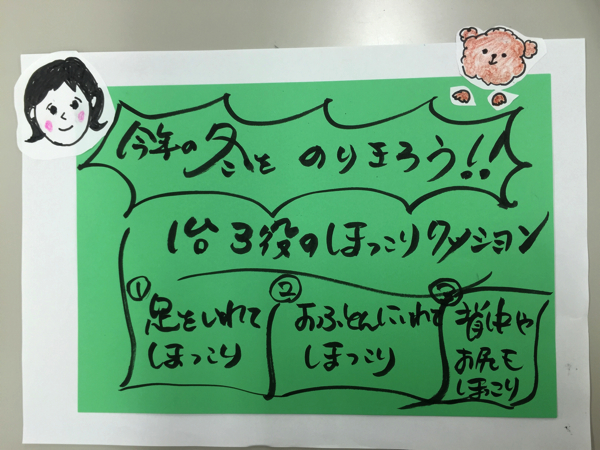 今年の冬をのりきろう!!
1台3役のほっこりクッション
①
足をいれて
ほっこり
②
おふとんにいれて
ほっこり
③
背中や
お尻も
ほっこり